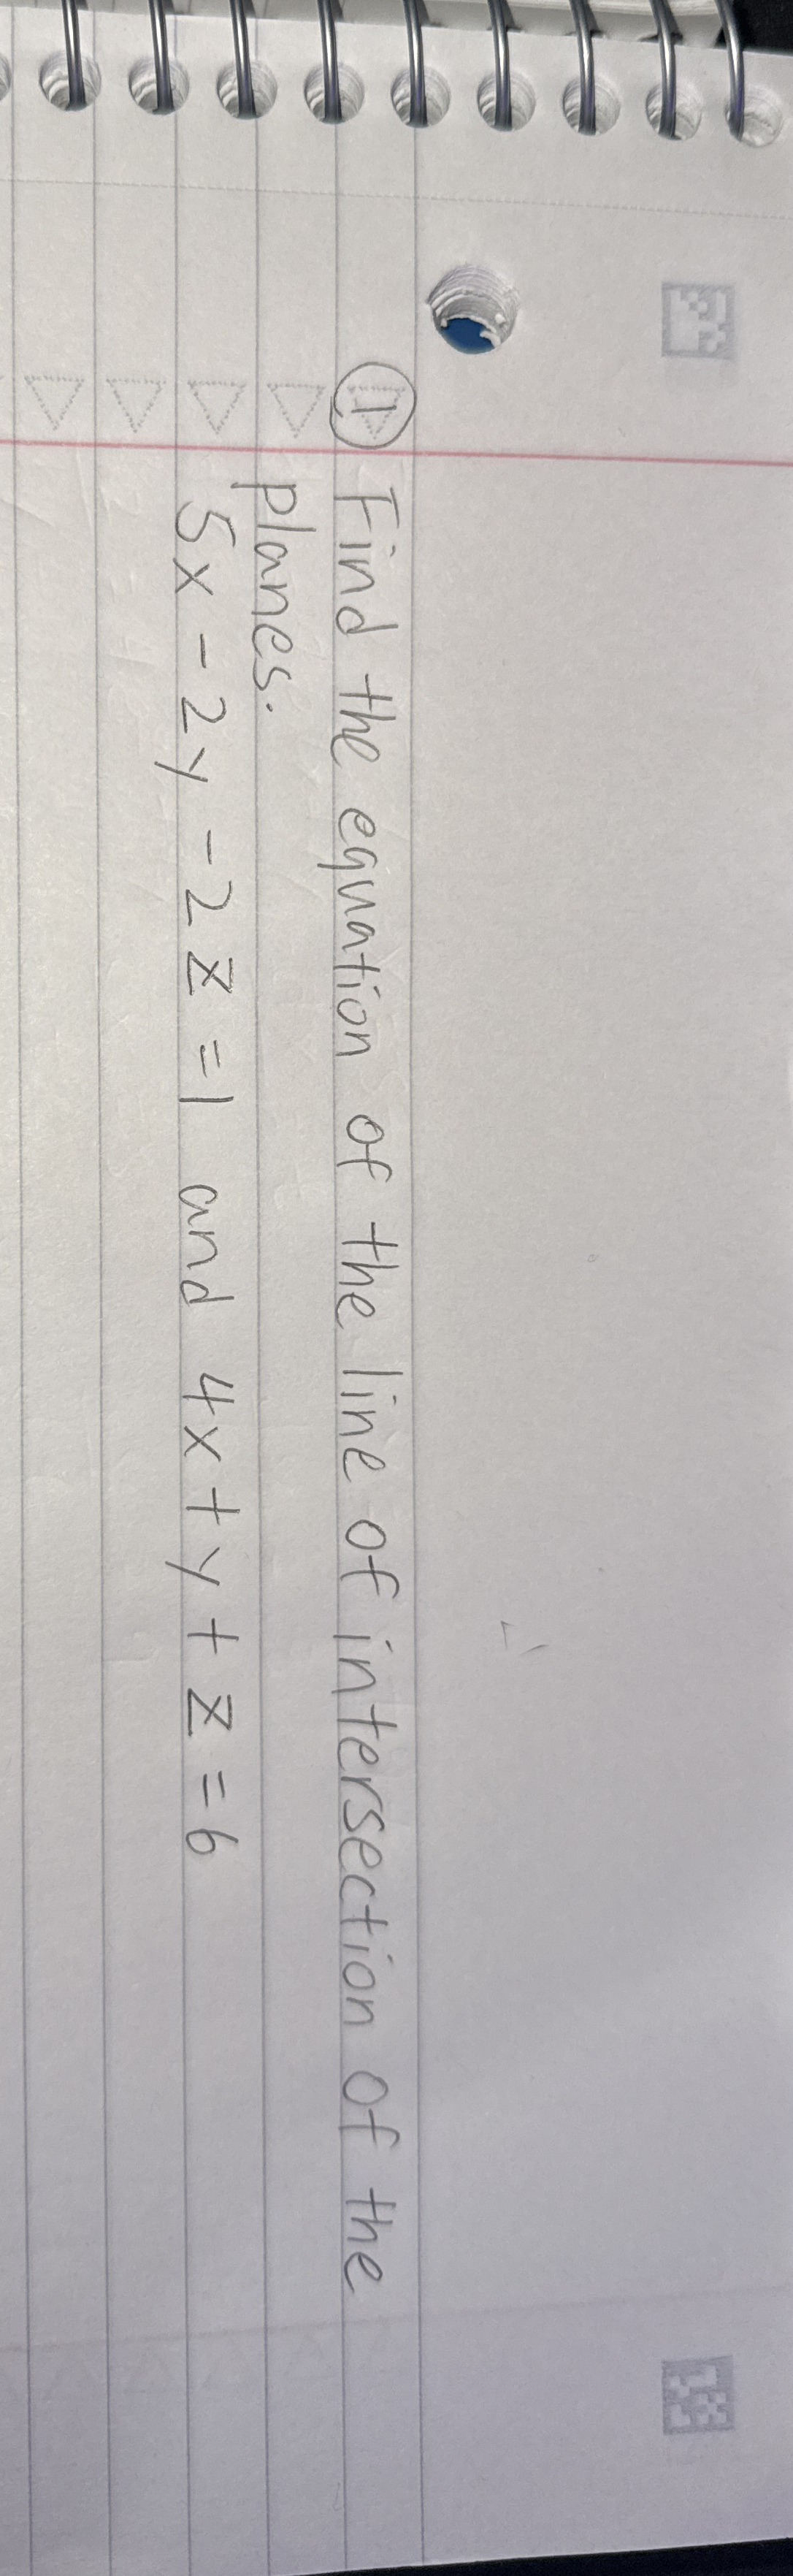 ① Find the equation of the line of intersection of the
planes.
5x - 2y - 2z = 1 and 4x + y + z = 6